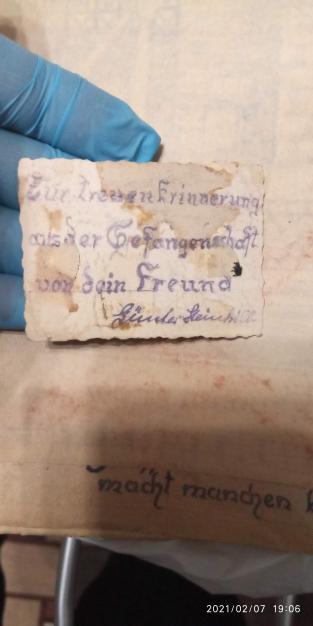 Zur Treuen Erinnerung
aus der Gefangenschaft
von dein Freund
Günter
macht manchen
2021/02/07 19:06